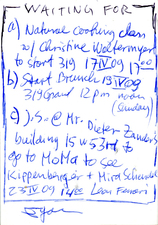 WAITING FOR
a) Natural cooking class
w/ Christine Wolfermeyer
to start 319 17 IV 09 17 00
b) Start Brunch 13 IV 09
319 Grand 12 pm noon
(Sunday)
c) J.S. @ Mr. Dieter Zander's
building 15 w 53rd to
go to MoMa to see
Kippenberger + Mira Schendel
23 IV 09 Leon Ferrari